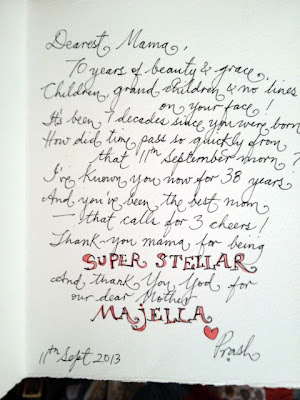 Dearest Mama,
70 years of beauty & grace,
Children, grand children & no lines
on your face!
It's been 7 decades since you were born
How did time pass so quickly from
that 11th September morn?
I've known you now for 38 years
And you've been the best mom
— that calls for 3 cheers!
Thank-you mama for being
SUPER STELLAR
And thank You God for
our dear Mother
MAJELLA
11th Sept 2013
Prash